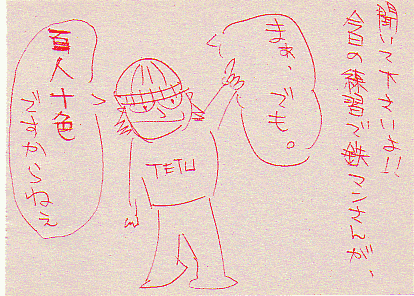 聞いて下さいよ!!
今日の練習で鉄マンさんが、
まぁ、でも。
百人十色
ですからねぇ
TETU